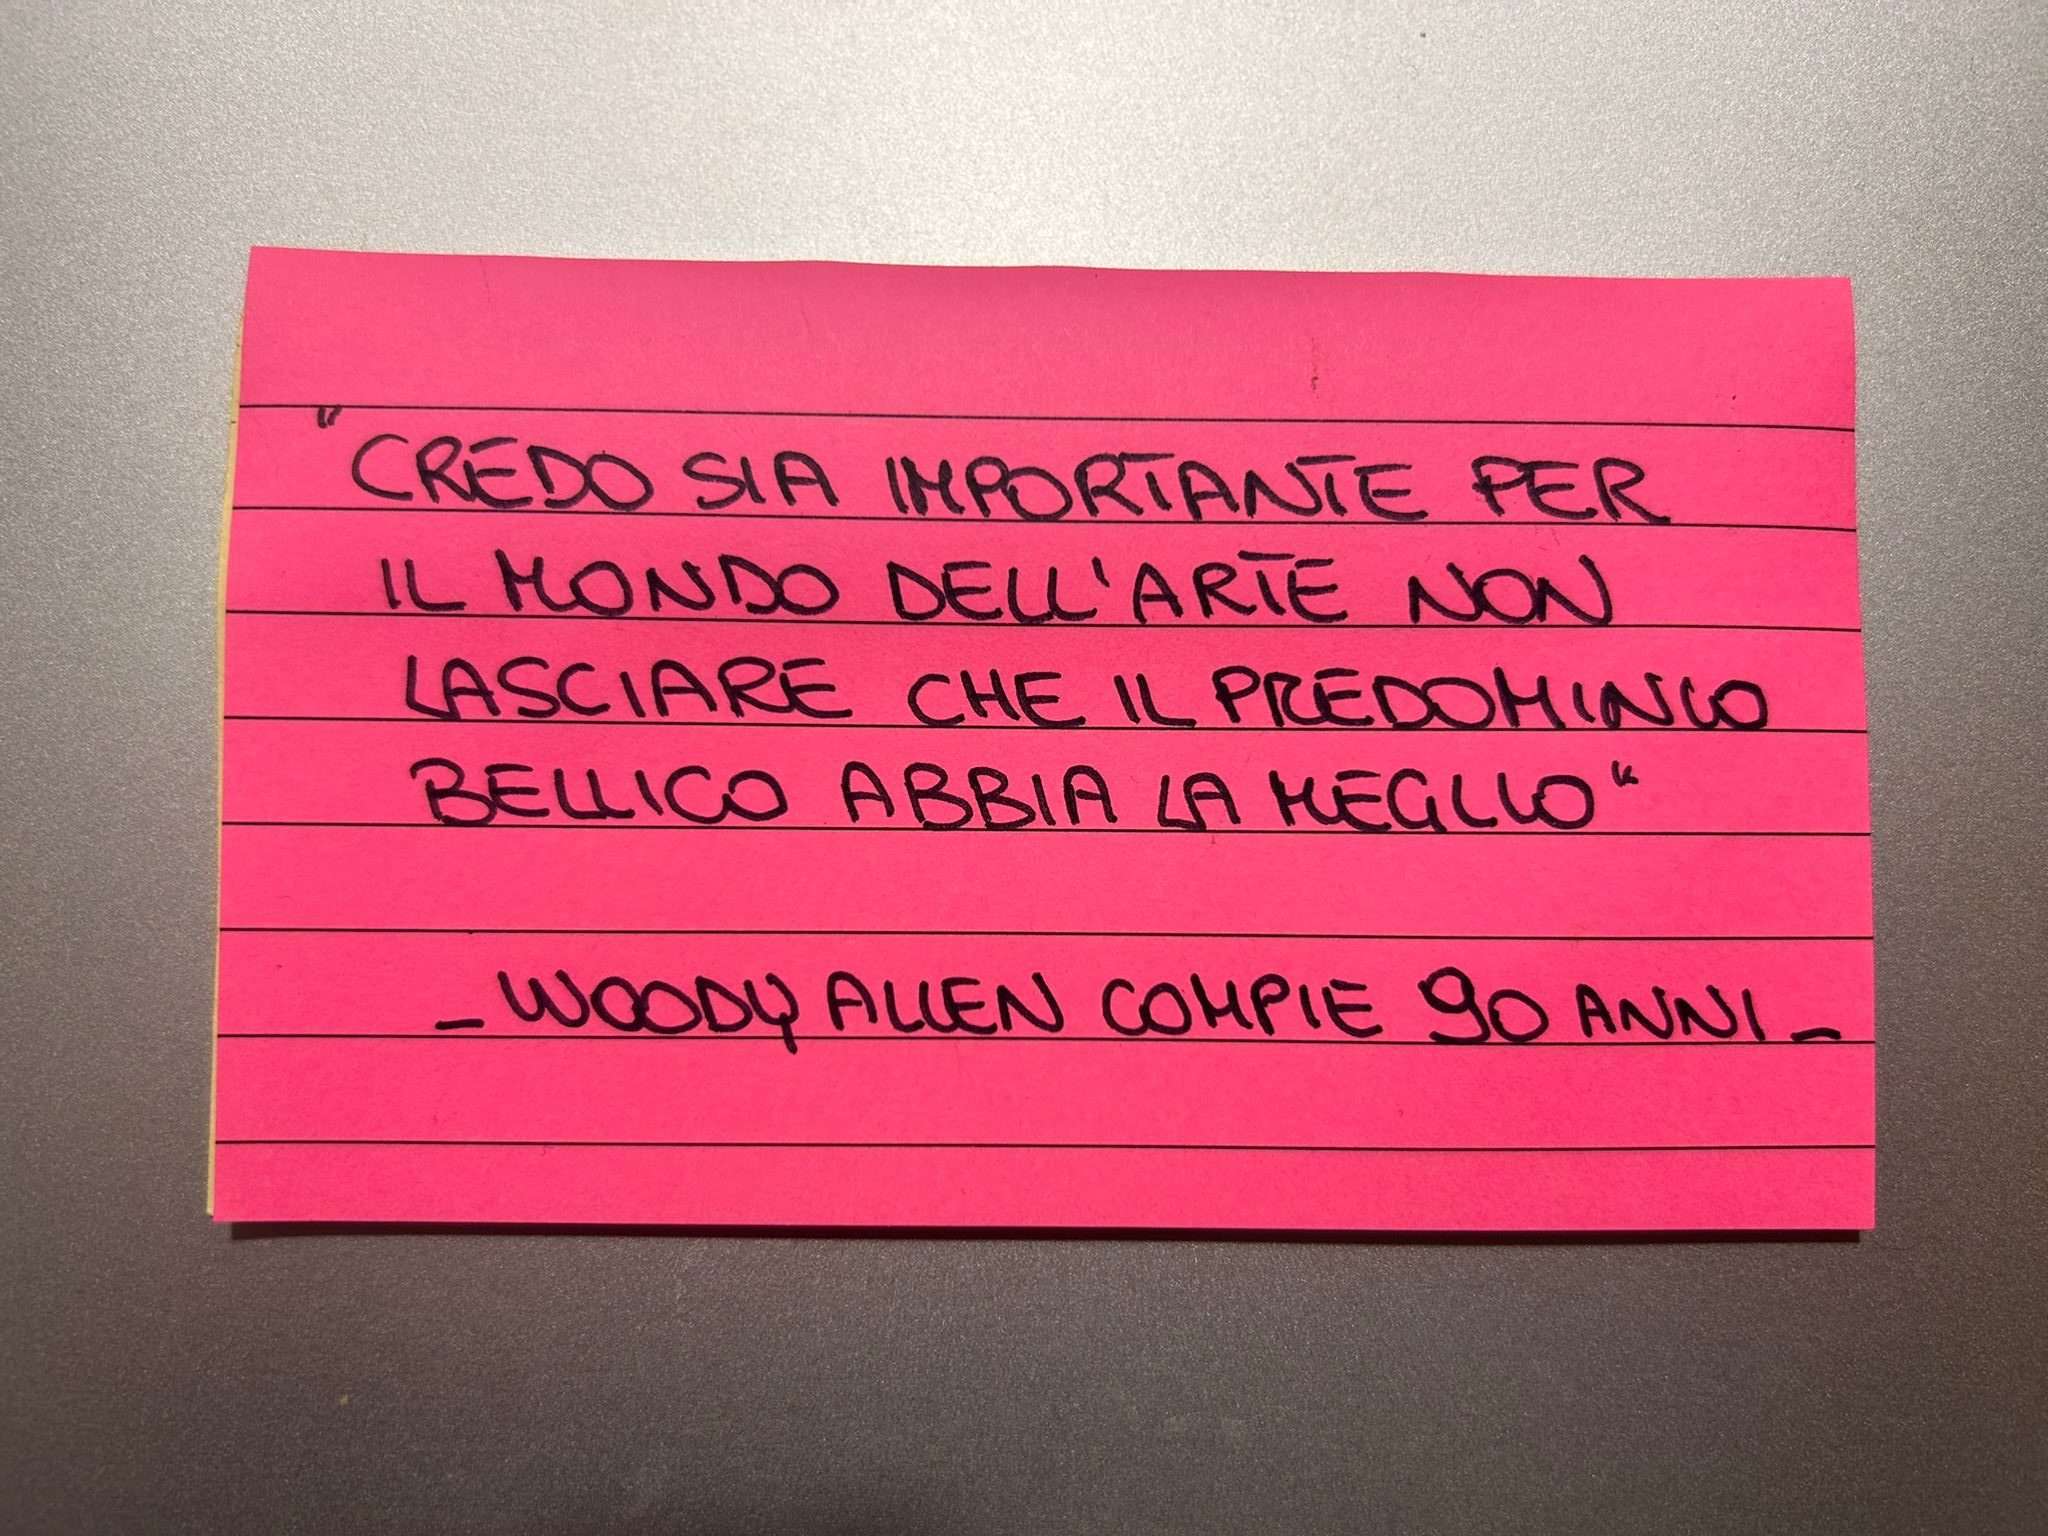 "CREDO SIA IMPORTANTE PER
IL MONDO DELL'ARTE NON
LASCIARE CHE IL PREDOMINIO
BELLICO ABBIA LA MEGLIO"
_WOODY ALLEN COMPIE 90 ANNI_